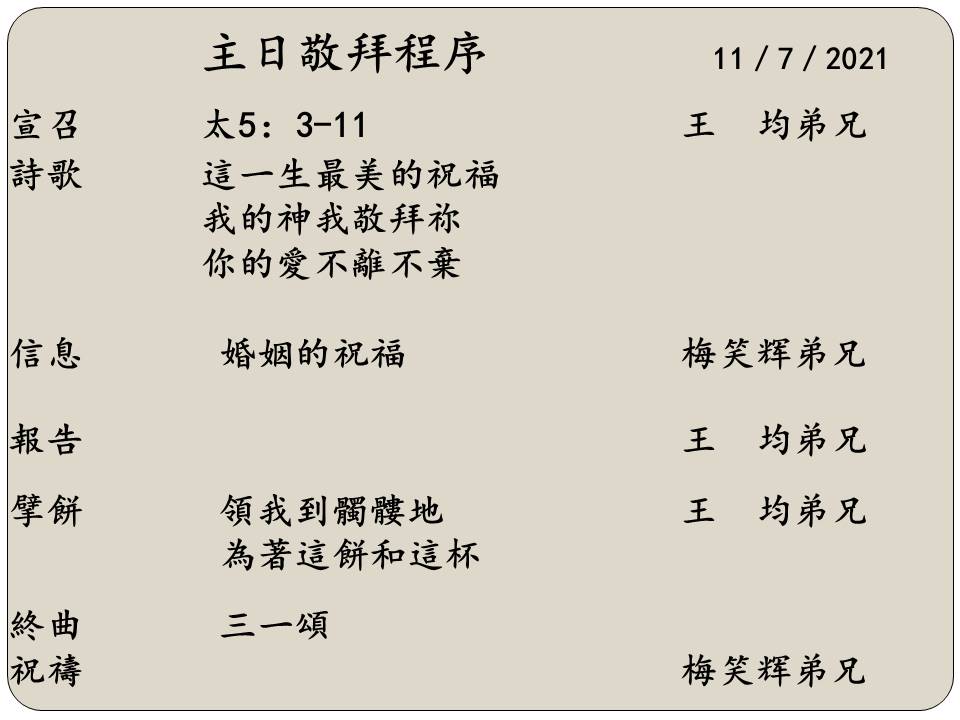 主日敬拜程序 11／7／2021
宣召 太5：3-11 王 均弟兄
詩歌 這一生最美的祝福
我的神我敬拜祢
你的愛不離不棄
信息 婚姻的祝福 梅笑辉弟兄
報告 王 均弟兄
擘餅 領我到髑髏地 王 均弟兄
為著這餅和這杯
終曲 三一頌
祝禱 梅笑辉弟兄